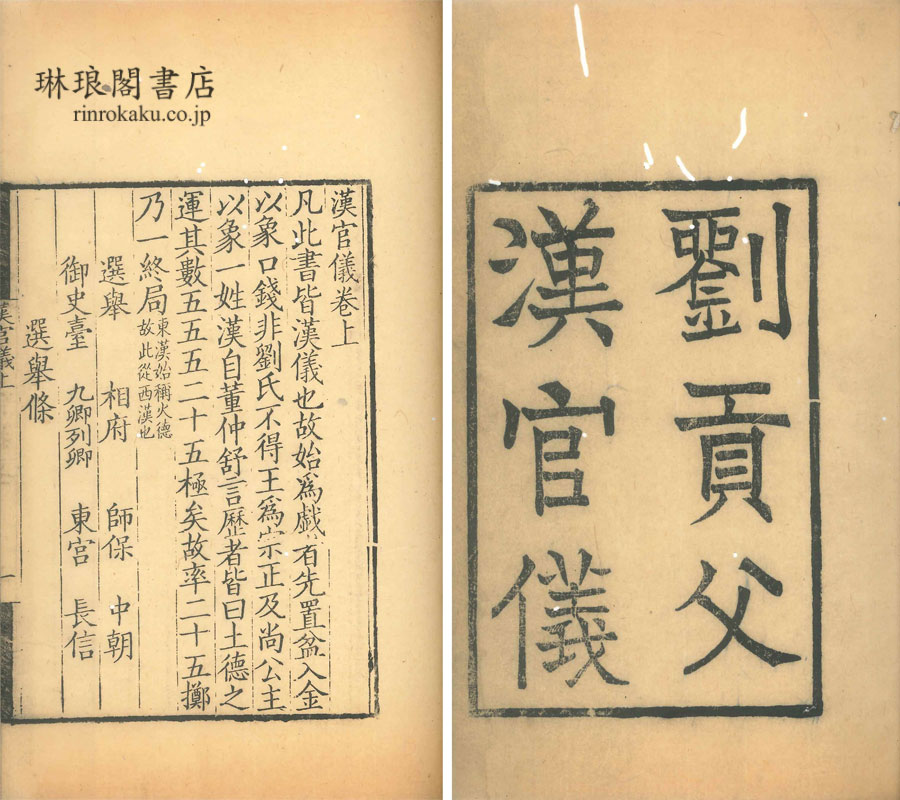 琳琅閣書店
rinrokaku.co.jp
劉貢父
漢官儀
漢官儀卷上
凡此書皆漢儀也故始爲戲者先置盆入金
以象口錢非劉氏不得王爲宗正及尚公主
以象一姓漢自董仲舒言歷者皆曰土德之
運其數五五五二十五極矣故率二十五擲
乃一終局東漢始稱火德
故此從西漢也
選舉 相府 師保 中朝
御史臺 九卿列卿 東宮 長信
選舉條
漢官儀上
一